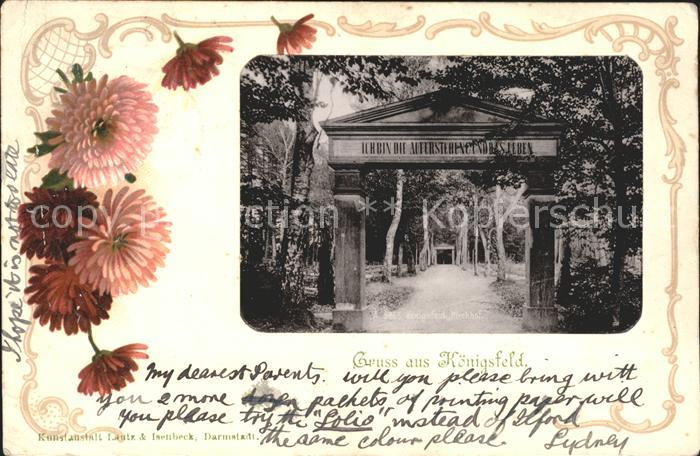 ICH BIN DIE AUFERSTEHUNG UND DAS LEBEN
copy protection *** Kopierschutz
Königsfeld, Kirchhof.
Gruss aus Königsfeld.
My dearest Parents. will you please bring with
you 2 more packets of printing paper will
you please try the "Solio" instead of Ilford
the same colour please. Sydney
Kunstanstalt Lautz & Isenbeck, Darmstadt.
I hope it is not too late